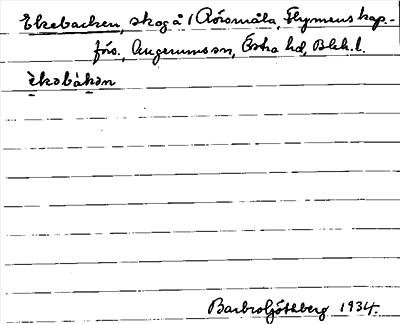 Ekebacken, skog å 1 Rörsmåla, Flymens kap.-
förs., Augerumssn, Östra hd, Blek.l.
èkəbàkən
Barbro Göthberg 1934.